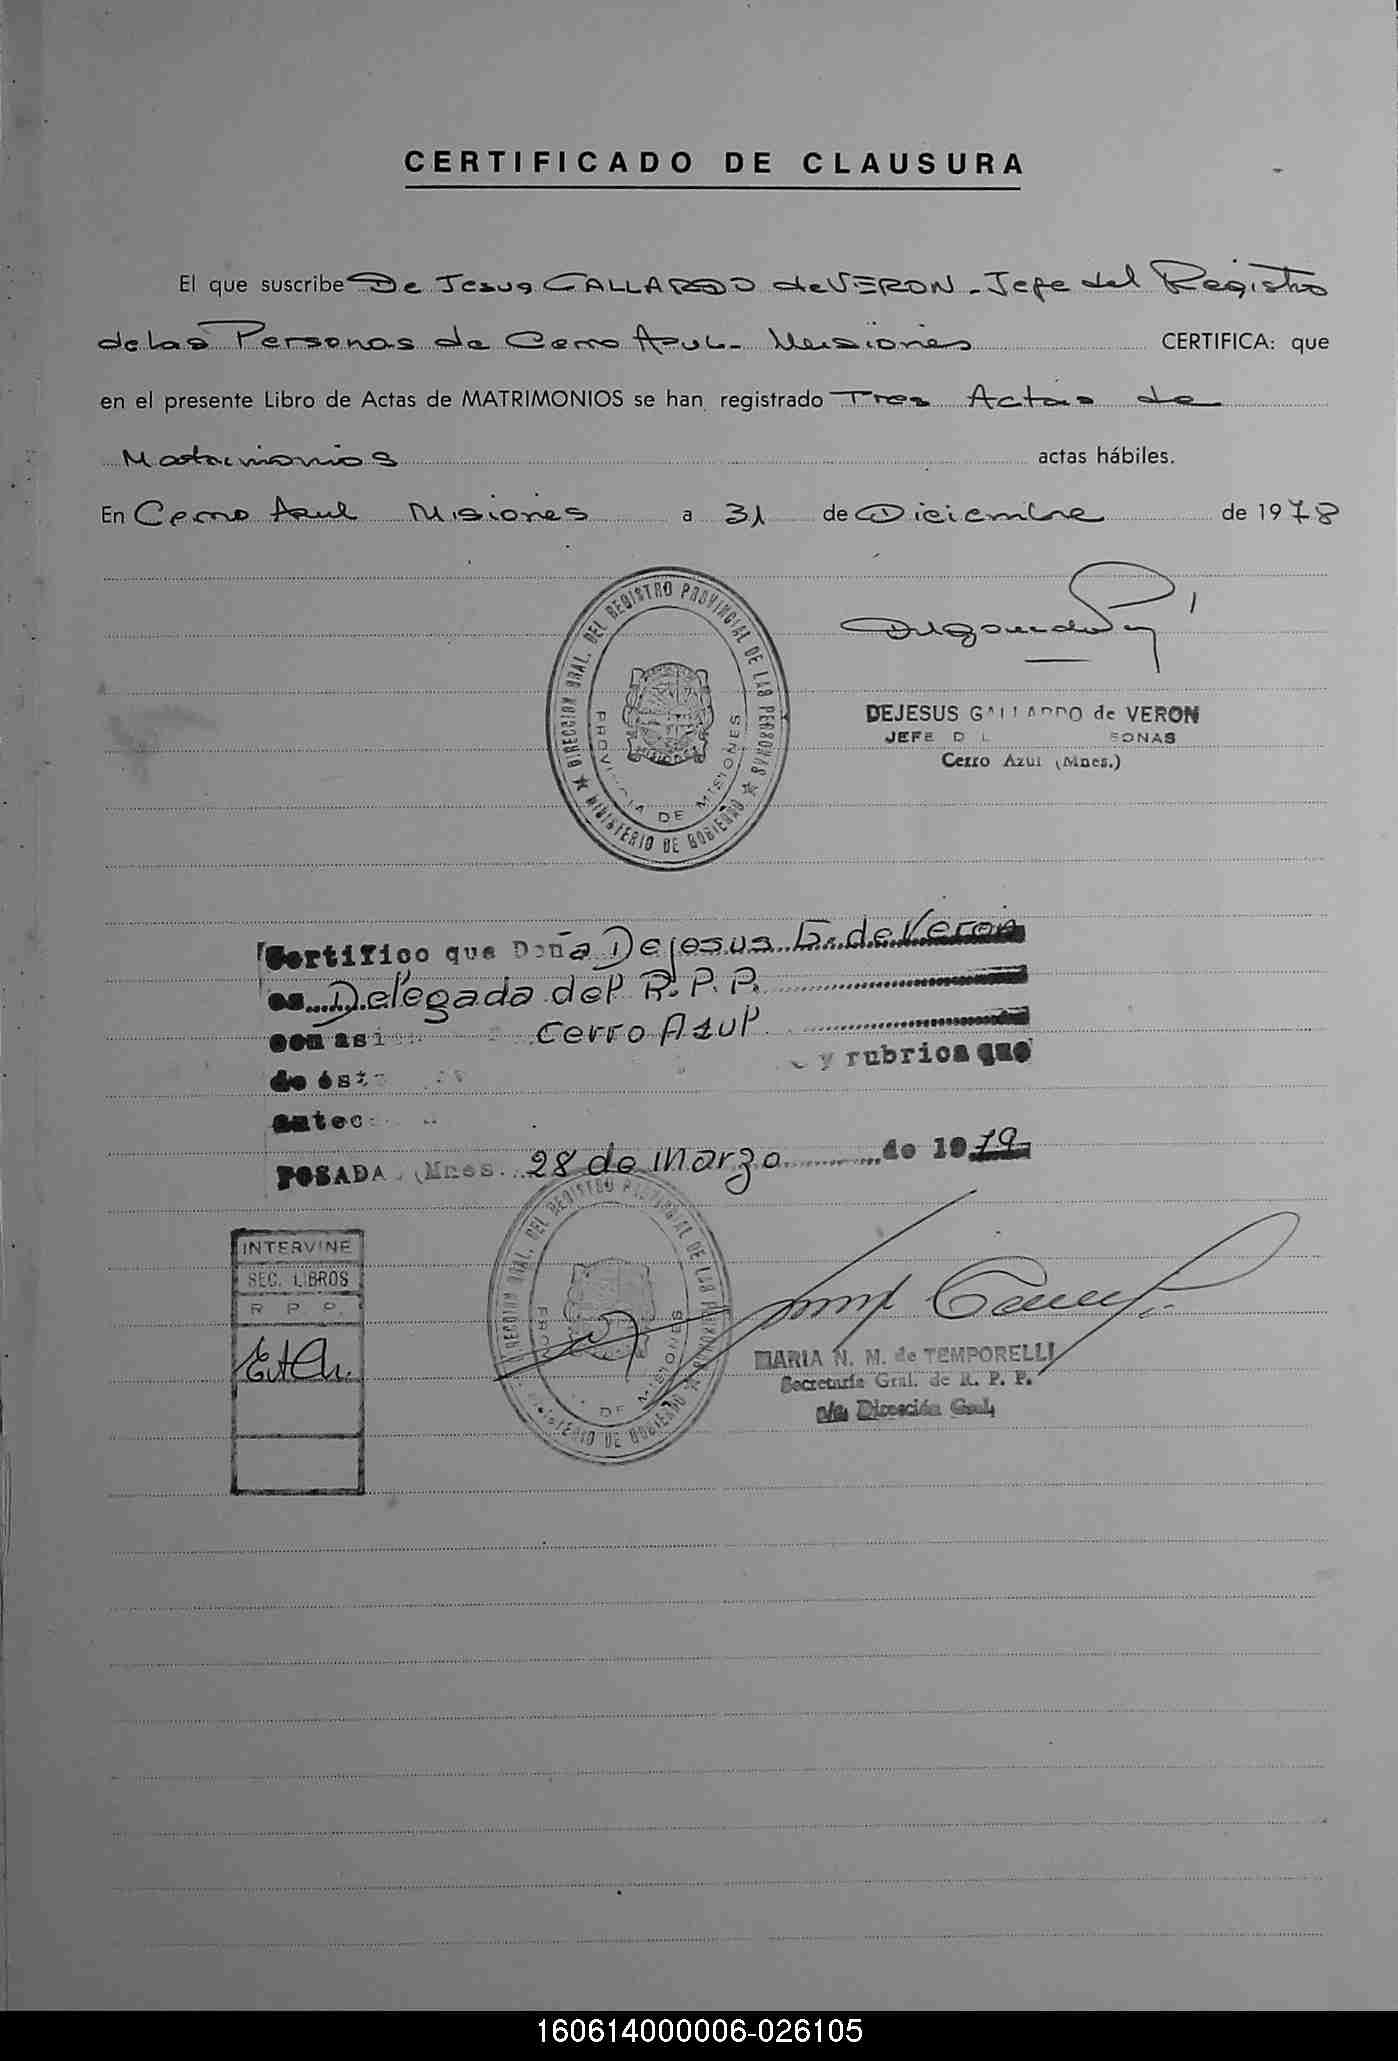 CERTIFICADO DE CLAUSURA
El que suscribe De Jesus GALLARDO de VERON - Jefe del Registro
de las Personas de Cerro Azul - Misiones CERTIFICA: que
en el presente Libro de Actas de MATRIMONIOS se han registrado Tres Actas de
Matrimonios actas hábiles.
En Cerro Azul Misiones a 31 de Diciembre de 1978
DIRECCION GRAL. DEL REGISTRO PROVINCIAL DE LAS PERSONAS
MINISTERIO DE GOBIERNO
PROVINCIA DE MISIONES
DEJESUS GALLARDO de VERON
JEFE D L SONAS
Cerro Azul (Mnes.)
Certifico que Doña Dejesus G. de Veron
es Delegada del R. P. P.
con asi Cerro Azul
de ést y rubrica que
antec
POSADA , Mnes. 28 de Marzo de 1979
INTERVINE
SEC. LIBROS
R P P.
DIRECCION GRAL. DEL REGISTRO PROVINCIAL DE LAS PERSONAS
MINISTERIO DE GOBIERNO
DE MISIONES
MARIA N. M. de TEMPORELLI
Secretaria Gral. de R. P. P.
a/c. Dirección Gral.
160614000006-026105